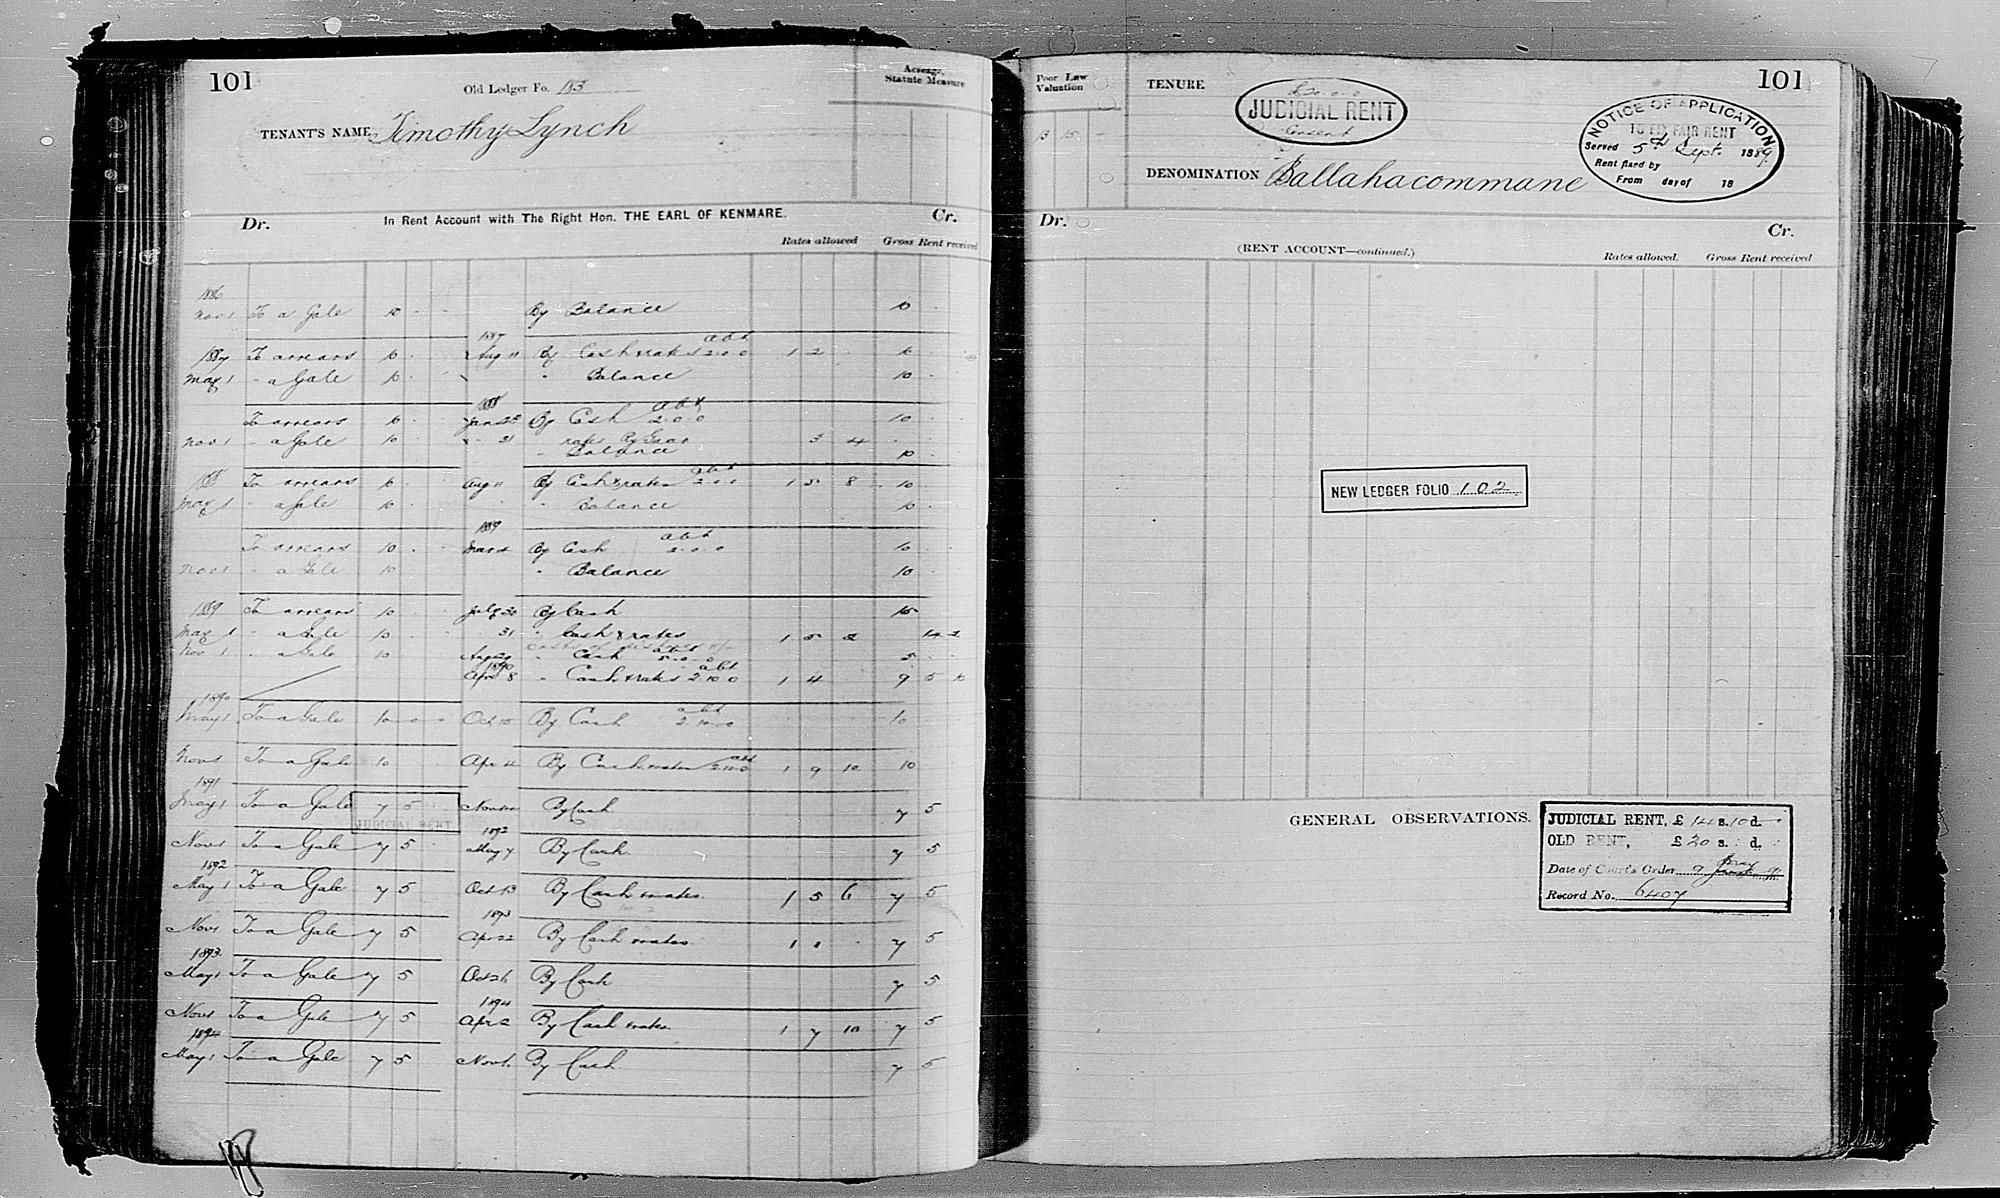 101
Old Ledger Fo. 183
Acreage, Statute Measure
TENANT'S NAME Timothy Lynch
Dr. In Rent Account with The Right Hon. THE EARL OF KENMARE. Cr.
Rates allowed Gross Rent received
1886
Nov 1 To a Gale 10 - - By Balance 10 -
1887 abt
1887 To arrears 10 - Aug 11 By Cash & rates 2.0.0 1 2 - 10 -
May 1 " a Gale 10 - " Balance 10 -
1888 abt
To arrears 10 - Jan 22 By Cash 2.0.0 10 -
Nov 1 " a Gale 10 - " 31 rates 3 4 - -
" Balance 10 -
1888 To arrears 10 - Aug 11 By Cash & rates abt 2.0.0 1 5 8 10 -
May 1 " a Gale 10 - " Balance 10 -
1889 abt
To arrears 10 - By Cash 2.0.0 10 -
Nov 1 " a Gale 10 " Balance 10 -
1889 To arrears 10 - July 30 By Cash 15
May 1 " a Gale 10 - " 31 " Cash & rates 1 5 2 14 2
Nov 1 " a Gale 10 - Aug 29 " Cash abt 5.0.0 5 -
1890 abt
Apr 8 " Cash & rates 2.10.0 1 4 9 5 10
1890 abt
May 1 To a Gale 10 - 0 - 0 Oct 15 By Cash 2.10.0 10
Nov 1 To a Gale 10 Apr 4 By Cash & rates abt 2.10.0 1 9 10 10
1891
May 1 To a Gale 7 5 By Cash 7 5
JUDICIAL RENT
1892
Nov 1 To a Gale 7 5 May 7 By Cash 7 5
1892
May 1 To a Gale 7 5 Oct 13 By Cash & rates 1 5 6 7 5
1893
Nov 1 To a Gale 7 5 Apr 22 By Cash & rates 1 1 - 7 5
1893
May 1 To a Gale 7 5 Oct 26 By Cash 7 5
1894
Nov 1 To a Gale 7 5 Apr 2 By Cash & rates 1 7 10 7 5
1894
May 1 To a Gale 7 5 Nov 1 By Cash 7 5
Poor Law Valuation
13 15 -
TENURE
£20.0.0
JUDICIAL RENT
Consent
101
NOTICE OF APPLICATION
TO FIX FAIR RENT
Served 5th Sept. 1889
Rent fixed by
From day of 18
DENOMINATION Ballahacommane
Dr. Cr.
(RENT ACCOUNT—continued.)
Rates allowed. Gross Rent received
NEW LEDGER FOLIO 102
GENERAL OBSERVATIONS.
JUDICIAL RENT, £14 s.10 d. -
OLD RENT, £20 s. - d. -
Date of Court's Order 9 May 91
Record No. 6407